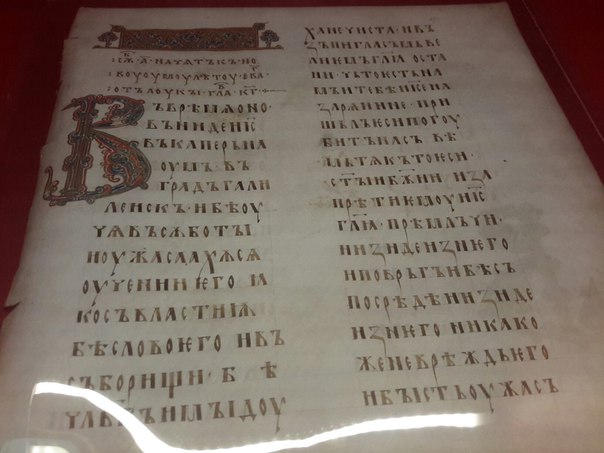 :сѫ҃·а҃· начатъкъ но
:воуоумоу лѣтоу· ева
:отъ лоукы· гла҃· к҃г·
Въ врѣмѧ оно·
въниде ис҃
въ каперьна
оумъ въ
градъ гали
леискъ· и бѣ оу
чѧ въ сѫботы
и оужасаахѫсѧ
о оучении ѥго ꙗ
ко съ властиѭ
бѣ слово ѥго и въ
съборищи· бѣ
чл҃вкъ имы доу
ха нечиста· и въ
зъпи гласъмь ве
лиѥмь глѧ҃ оста
ни· чьто ѥстъ на
мъ и тебѣ ис҃е на
зарѧнине· при
шьлъ ѥси погоу
битъ насъ· вѣ
мь тѧ къто ѥси·
ст҃ыи бж҃ии· и за
прѣти ѥмоу ис҃
глѧ҃· прѣмлъчи·
и изиди из него
и повръгъ и бѣсъ
посрѣдѣ изиде
из него никако
же не врѣждь ѥго
и бꙑстъ оужасъ